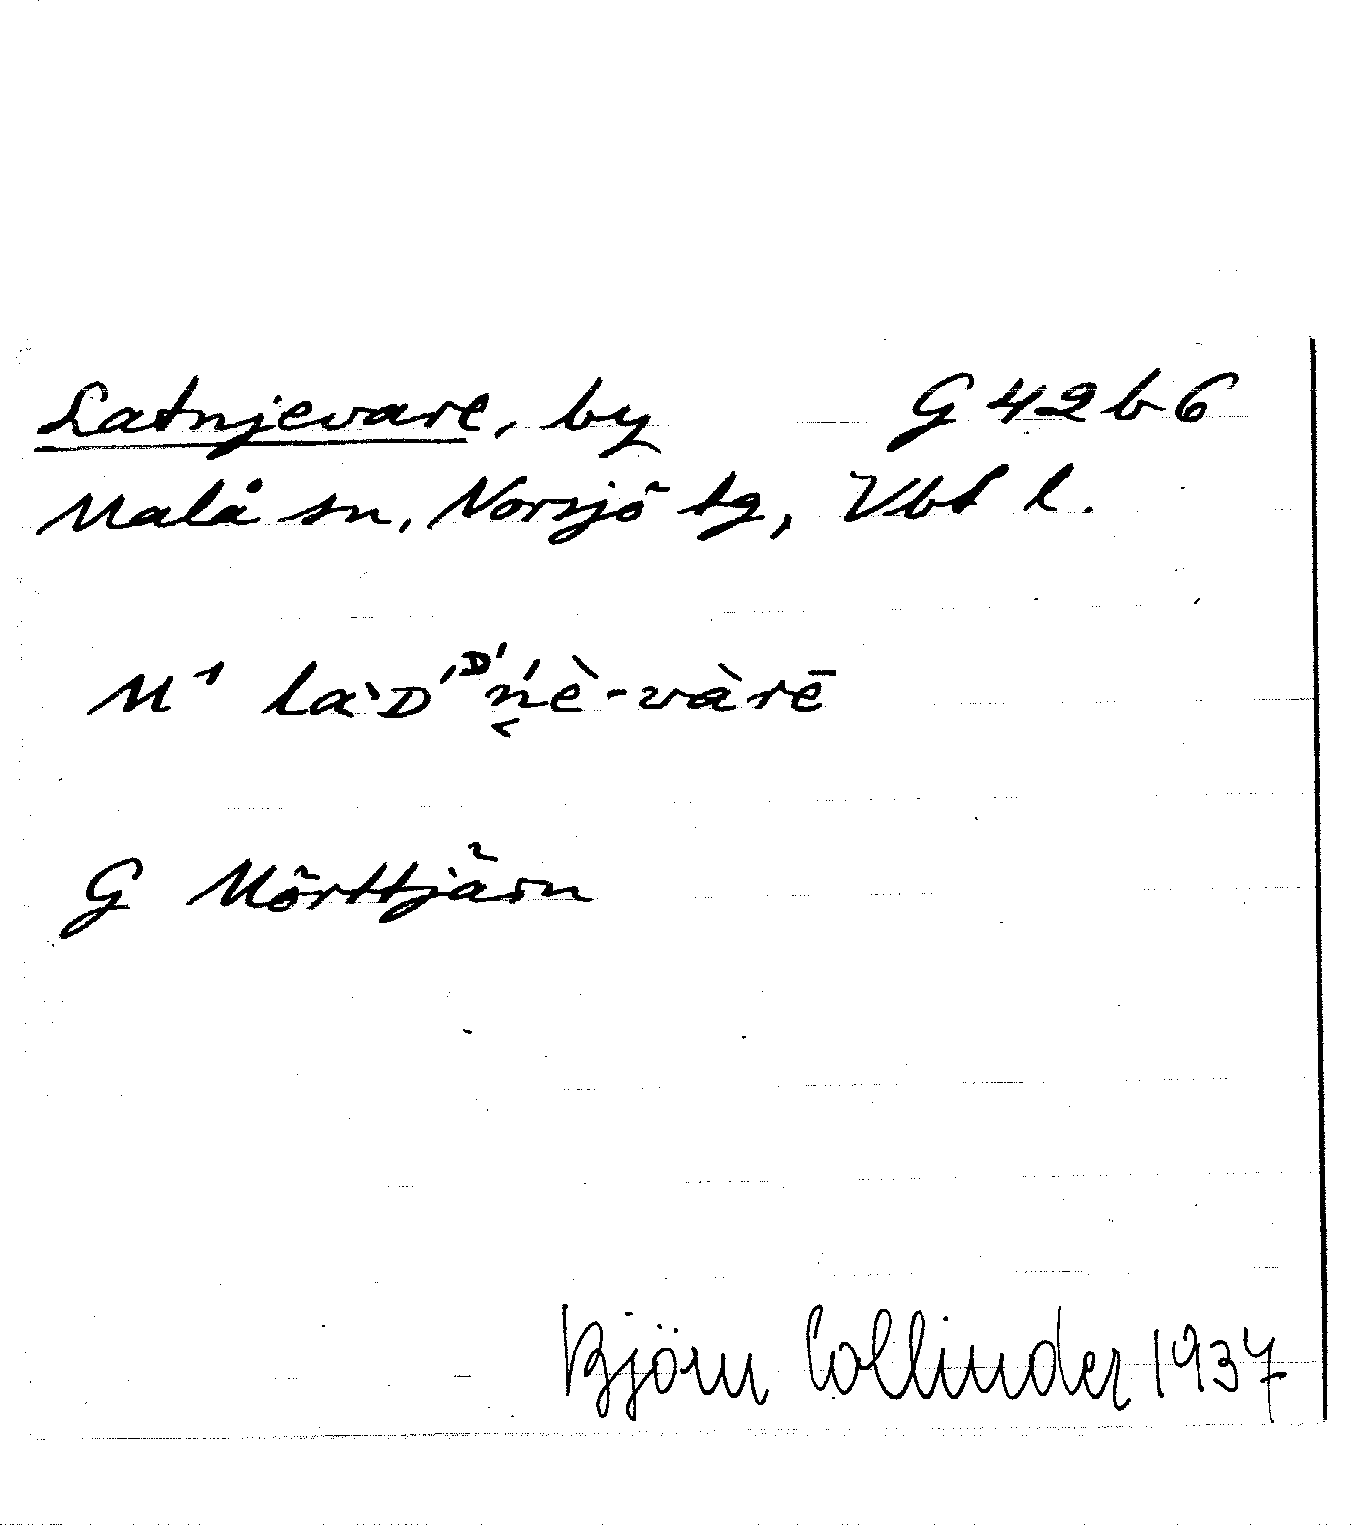 Latnjevare, by G 42 b 6
Malå sn, Norsjö tg, Vbt l.
M¹ laˋᴅ′ᴰ′ń̬è-vàrē
G Mörttjärn
Björn Collinder 1937